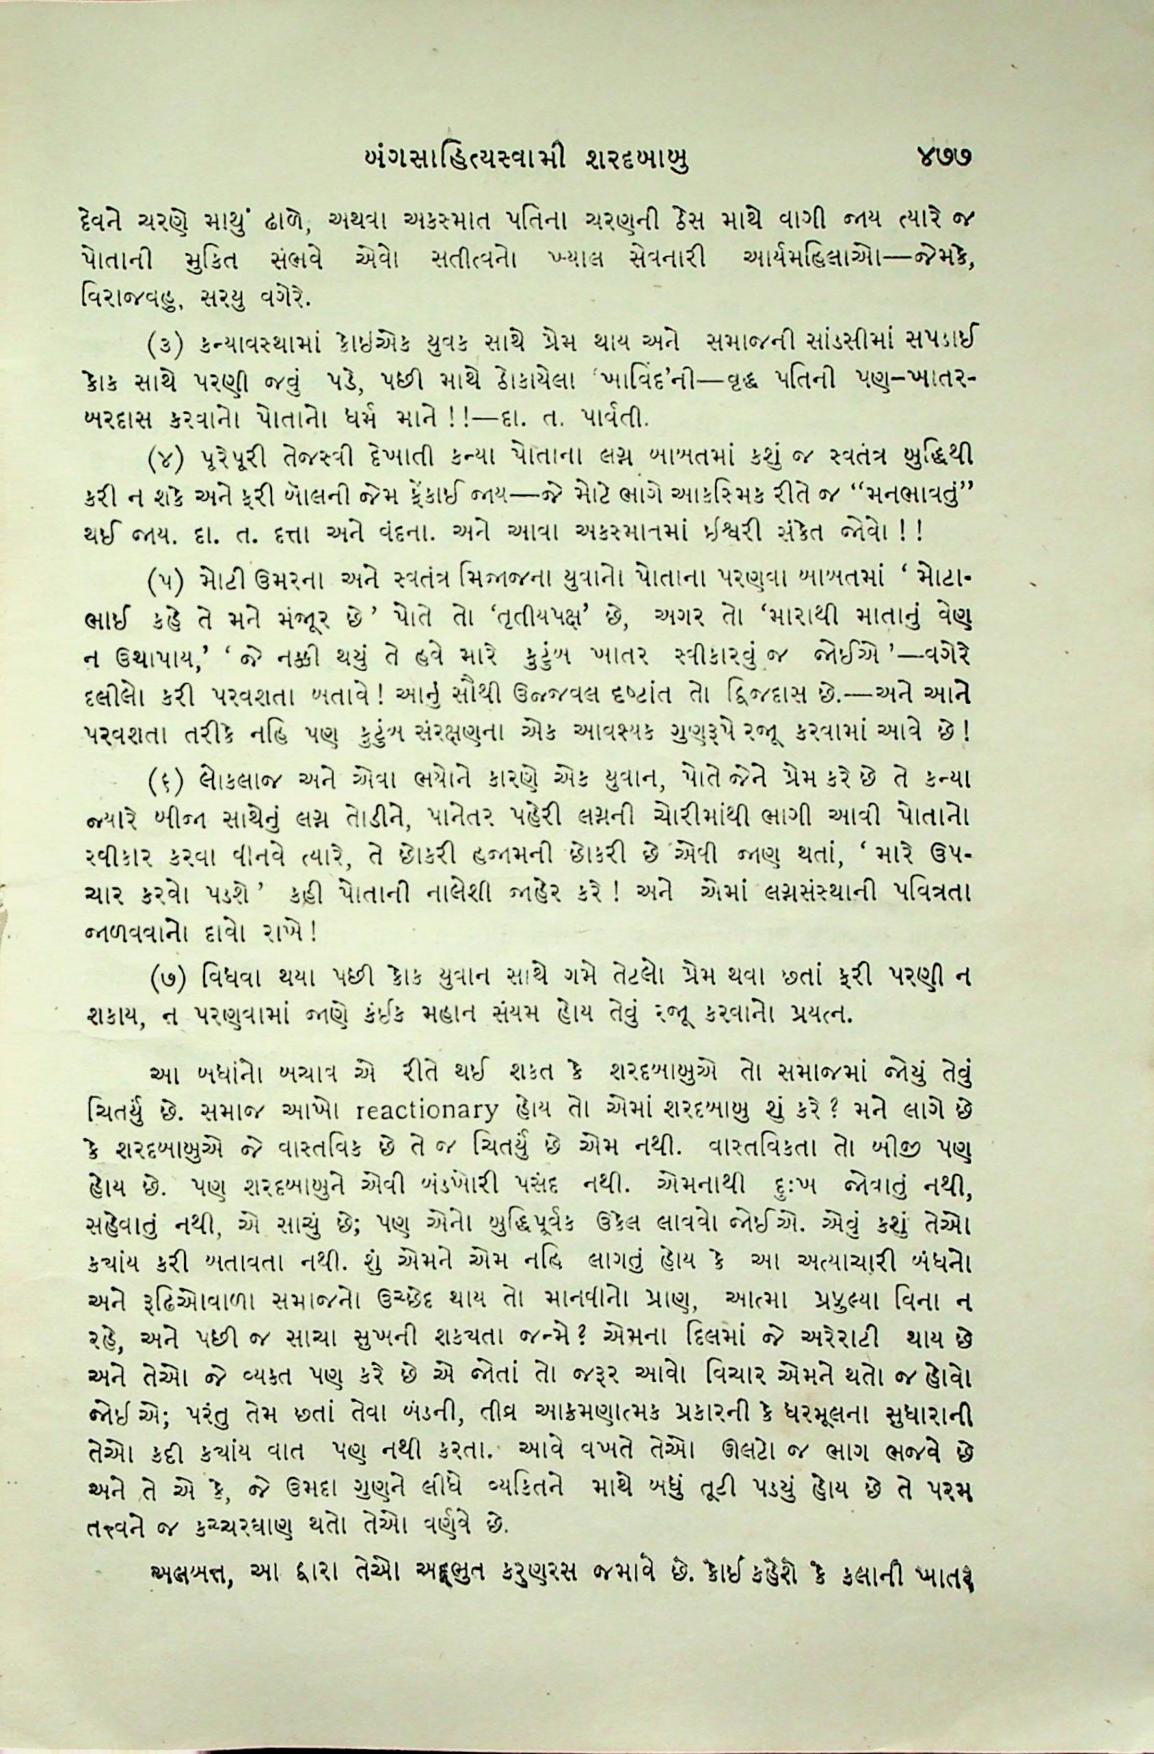 બંગસાહિત્યસ્વામી શરદબાબુ ૪૭૭
દેવને ચરણે માથું ઢાળે, અથવા અકસ્માત પતિના ચરણની ઠેસ માથે વાગી જાય ત્યારે જ
પોતાની મુક્તિ સંભવે એવો સતીત્વનો ખ્યાલ સેવનારી આર્યમહિલાઓ—જેમકે,
વિરાજવહુ, સરયુ વગેરે.
(૩) કન્યાવસ્થામાં કોઇએક યુવક સાથે પ્રેમ થાય અને સમાજની સાંડસીમાં સપડાઈ
કોક સાથે પરણી જવું પડે, પછી માથે ઠોકાયેલા ‘ખાવિંદ’ની—વૃદ્ધ પતિની પણ–ખાતર-
બરદાસ કરવાનો પોતાનો ધર્મ માને !!—દા. ત. પાર્વતી.
(૪) પૂરેપૂરી તેજસ્વી દેખાતી કન્યા પોતાના લગ્ન બાબતમાં કશું જ સ્વતંત્ર બુદ્ધિથી
કરી ન શકે અને ફરી બૉલની જેમ ફેંકાઈ જાય—જે મોટે ભાગે આકસ્મિક રીતે જ “મનભાવતું”
થઈ જાય. દા. ત. દત્તા અને વંદના. અને આવા અકસ્માતમાં ઈશ્વરી સંકેત જોવો !!
(૫) મોટી ઉમરના અને સ્વતંત્ર મિજાજના યુવાનો પોતાના પરણવા બાબતમાં ‘મોટા-
ભાઈ કહે તે મને મંજૂર છે’ પોતે તો ‘તૃતીયપક્ષ’ છે, અગર તો ‘મારાથી માતાનું વેણ
ન ઉથાપાય,’ ‘જે નક્કી થયું તે હવે મારે કુટુંબ ખાતર સ્વીકારવું જ જોઈએ’—વગેરે
દલીલો કરી પરવશતા બતાવે! આનું સૌથી ઉજ્જવલ દૃષ્ટાંત તો દ્વિજદાસ છે.—અને આને
પરવશતા તરીકે નહિ પણ કુટુંબ સંરક્ષણના એક આવશ્યક ગુણરૂપે રજૂ કરવામાં આવે છે!
(૬) લોકલાજ અને એવા ભયોને કારણે એક યુવાન, પોતે જેને પ્રેમ કરે છે તે કન્યા
જ્યારે બીજા સાથેનું લગ્ન તોડીને, પાનેતર પહેરી લગ્નની ચોરીમાંથી ભાગી આવી પોતાનો
સ્વીકાર કરવા વીનવે ત્યારે, તે છોકરી હજામની છોકરી છે એવી જાણ થતાં, ‘મારે ઉપ-
ચાર કરવો પડશે’ કહી પોતાની નાલેશી જાહેર કરે! અને એમાં લગ્નસંસ્થાની પવિત્રતા
જાળવવાનો દાવો રાખે!
(૭) વિધવા થયા પછી કોક યુવાન સાથે ગમે તેટલો પ્રેમ થવા છતાં ફરી પરણી ન
શકાય, ન પરણવામાં જાણે કંઈક મહાન સંયમ હોય તેવું રજૂ કરવાનો પ્રયત્ન.
આ બધાંનો બચાવ એ રીતે થઈ શકત કે શરદબાબુએ તો સમાજમાં જોયું તેવું
ચિતર્યું છે. સમાજ આખો reactionary હોય તો એમાં શરદબાબુ શું કરે? મને લાગે છે
કે શરદબાબુએ જે વાસ્તવિક છે તે જ ચિતર્યું છે એમ નથી. વાસ્તવિકતા તો બીજી પણ
હોય છે. પણ શરદબાબુને એવી બંડખોરી પસંદ નથી. એમનાથી દુઃખ જોવાતું નથી,
સહેવાતું નથી, એ સાચું છે; પણ એનો બુદ્ધિપૂર્વક ઉકેલ લાવવો જોઈએ. એવું કશું તેઓ
ક્યાંય કરી બતાવતા નથી. શું એમને એમ નહિ લાગતું હોય કે આ અત્યાચારી બંધનો
અને રૂઢિઓવાળા સમાજનો ઉચ્છેદ થાય તો માનવીનો પ્રાણ, આત્મા પ્રફુલ્યા વિના ન
રહે, અને પછી જ સાચા સુખની શક્યતા જન્મે? એમના દિલમાં જે અરેરાટી થાય છે
અને તેઓ જે વ્યક્ત પણ કરે છે એ જોતાં તો જરૂર આવો વિચાર એમને થતો જ હોવો
જોઈએ; પરંતુ તેમ છતાં તેવા બંડની, તીવ્ર આક્રમણાત્મક પ્રકારની કે ધરમૂલના સુધારાની
તેઓ કદી ક્યાંય વાત પણ નથી કરતા. આવે વખતે તેઓ ઊલટો જ ભાગ ભજવે છે
અને તે એ કે, જે ઉમદા ગુણને લીધે વ્યક્તિને માથે બધું તૂટી પડયું હોય છે તે પરમ
તત્ત્વને જ કચ્ચરઘાણ થતો તેઓ વર્ણવે છે.
અલબત્ત, આ દ્વારા તેઓ અદ્ભુત કરુણરસ જમાવે છે. કોઈ કહેશે કે કલાની ખાતર